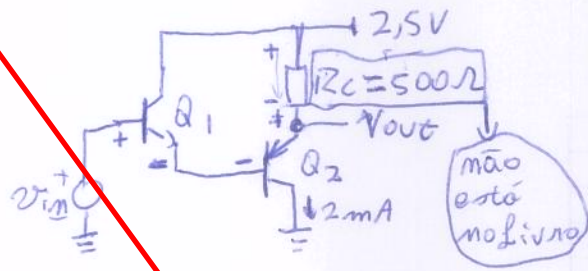 2,5V
+
Rc = 500Ω
-
+
Q1
Vout
+
-
-
Q2
vin
+
↓ 2mA
não
está
no livro